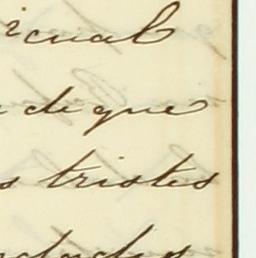 cual
de que
tristes